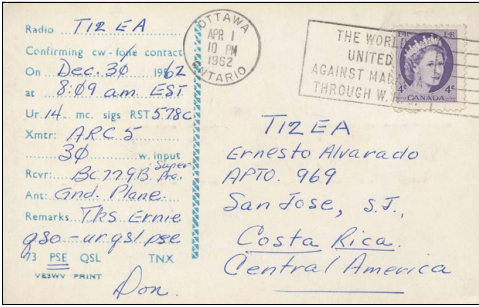 Radio TI2EA
Confirming cw-fone contact
On Dec. 30 1962
at 8:09 am EST
Ur 14 mc. sigs RST 578c
Xmtr: ARC 5
30 w. input
Rcvr: BC779B Super Pro.
Ant: Gnd. Plane
Remarks Tks Ernie
qso - ur qsl pse
73 PSE QSL TNX
VE3WV PRINT
Don.
OTTAWA
APR 1
10 PM
1962
ONTARIO
THE WORLD
UNITED
AGAINST MALA
THROUGH W.
4¢ 4¢
CANADA
TI2EA
Ernesto Alvarado
APTO. 969
San Jose, S.J.,
Costa Rica.
Central America